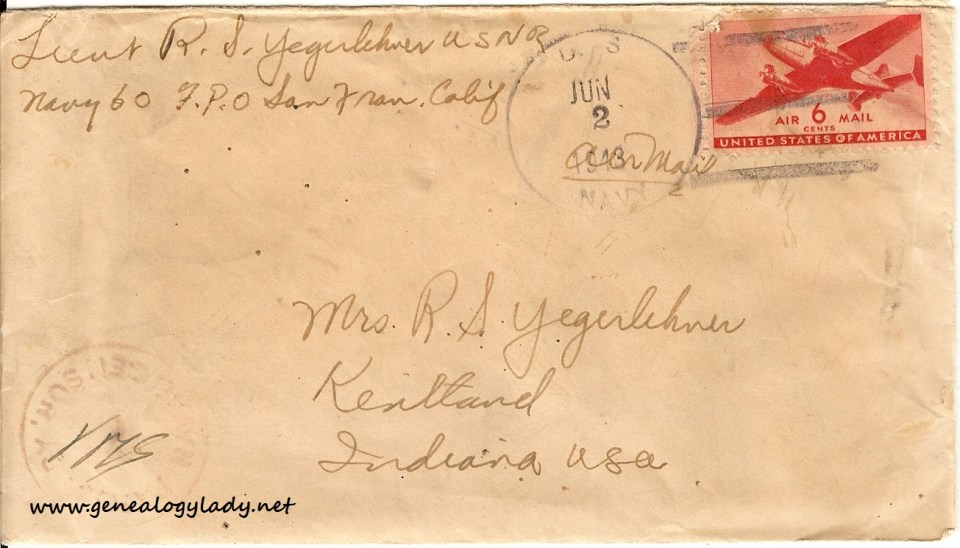 Lieut R. S. Yegerlehner USNR
Navy 60 F.P.O San Fran. Calif
U. S.
JUN
2
1943
NAVY
Air Mail
AIR 6 MAIL
CENTS
UNITED STATES OF AMERICA
Mrs. R. S. Yegerlehner
Kentland
Indiana USA
www.genealogylady.net